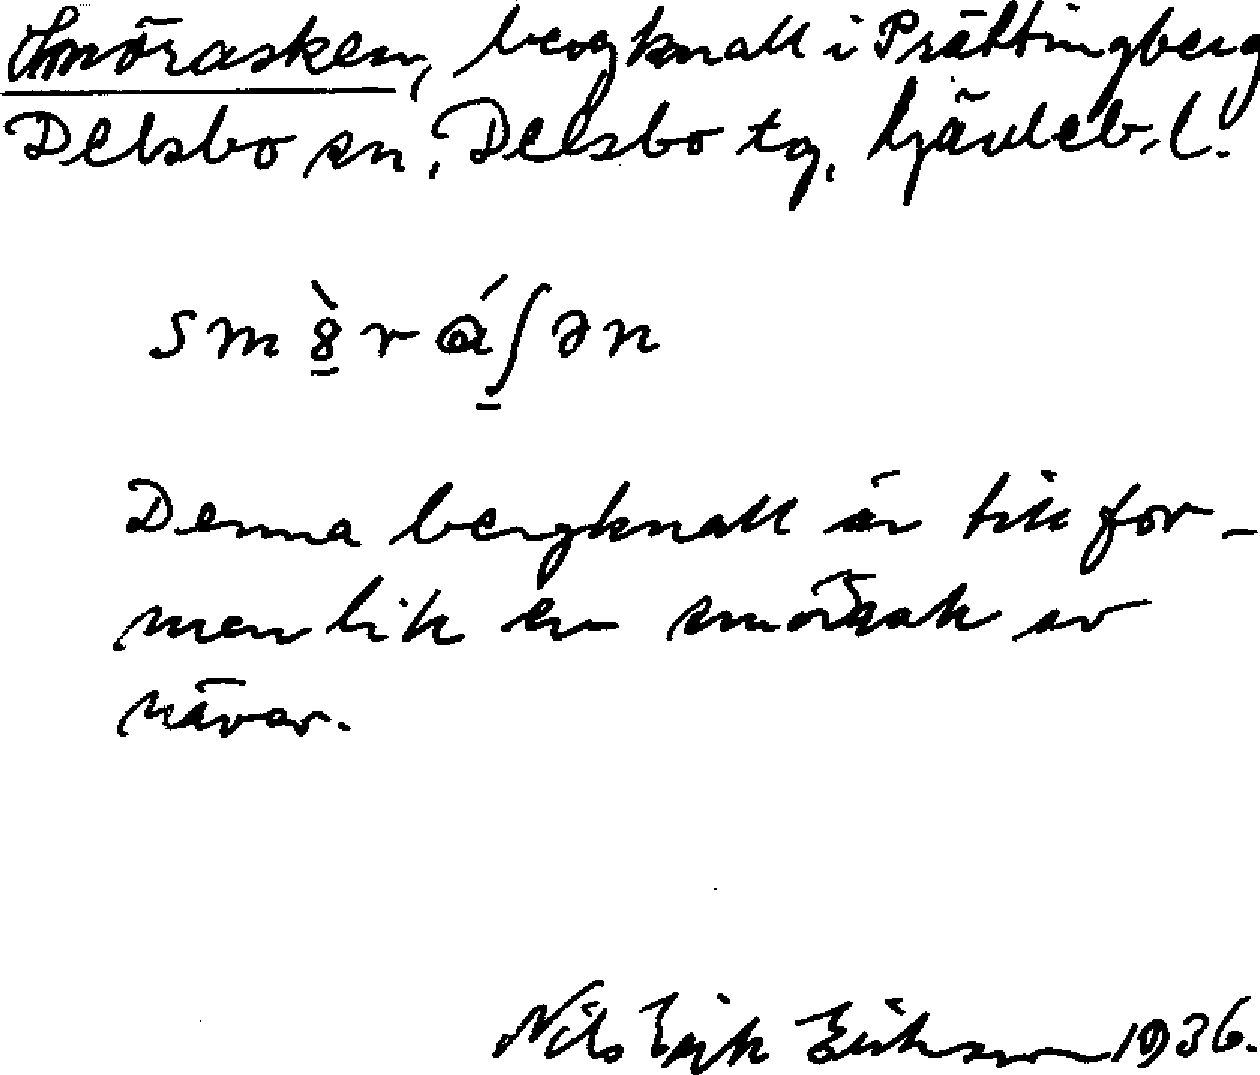 Smörasken, bergknall i Prättingberg
Delsbo sn, Delsbo tg, Gävleb. l.
sm8̲̀rɑ́ʃ̲ən
Denna bergknall är till for-
men lik en smörask av
näver.
Nils Erik Eriksson 1936.